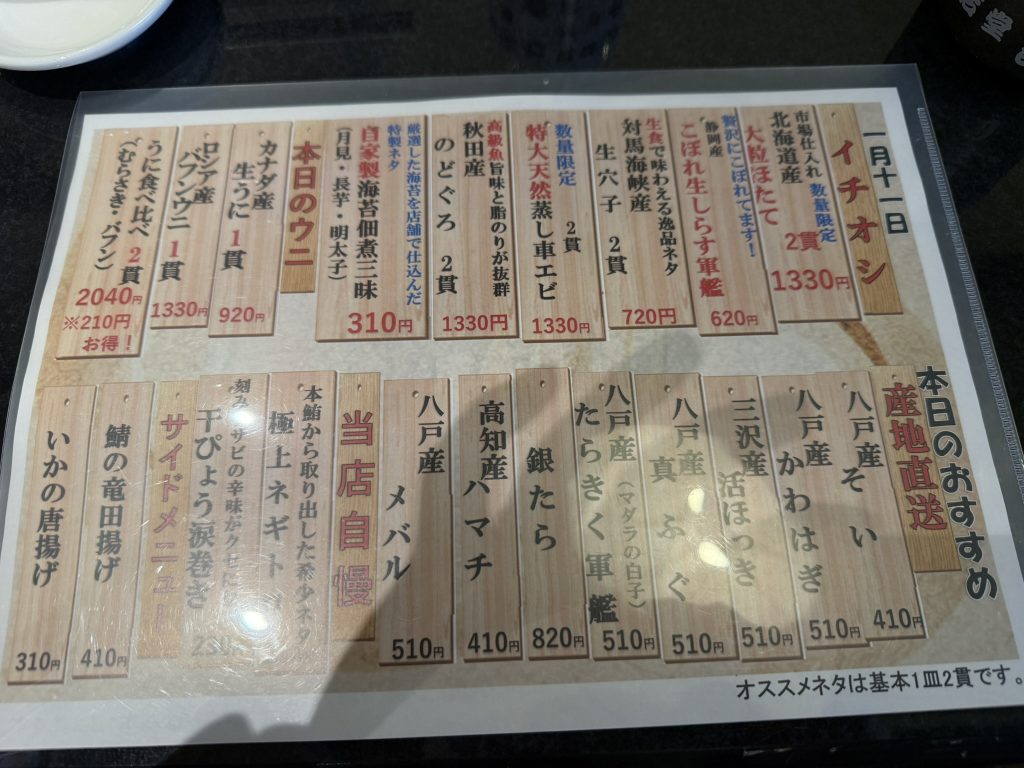 一月十一日
イチオシ
市場仕入れ 数量限定
北海道産
大粒ほたて
2貫
1330円
贅沢にこぼれてます!
静岡産
こぼれ生しらす軍艦
620円
生食で味わえる逸品ネタ
対馬海峡産
生穴子 2貫
720円
数量限定
特大天然蒸し車エビ
2貫
1330円
高級魚旨味と脂のりが抜群
秋田産
のどぐろ 2貫
1330円
厳選した海苔を店舗で仕込んだ
特製ネタ
自家製海苔佃煮三昧
(月見・長芋・明太子)
310円
本日のウニ
カナダ産
生うに 1貫
920円
ロシア産
バフンウニ 1貫
1330円
うに食べ比べ 2貫
(むらさき・バフン)
2040円
※210円
お得!
本日のおすすめ
産地直送
八戸産
そい
410円
八戸産
かわはぎ
510円
三沢産
活ほっき
510円
八戸産
真ふぐ
510円
八戸産(マダラの白子)
たらきく軍艦
510円
銀たら
820円
高知産
ハマチ
410円
八戸産
メバル
510円
当店自慢
本鮪から取り出した希少ネタ
極上ネギト
刻みワサビの辛味がクセに
干ぴょう涙巻き
サイドメニュー
鯖の竜田揚げ
410円
いかの唐揚げ
310円
オススメネタは基本1皿2貫です。